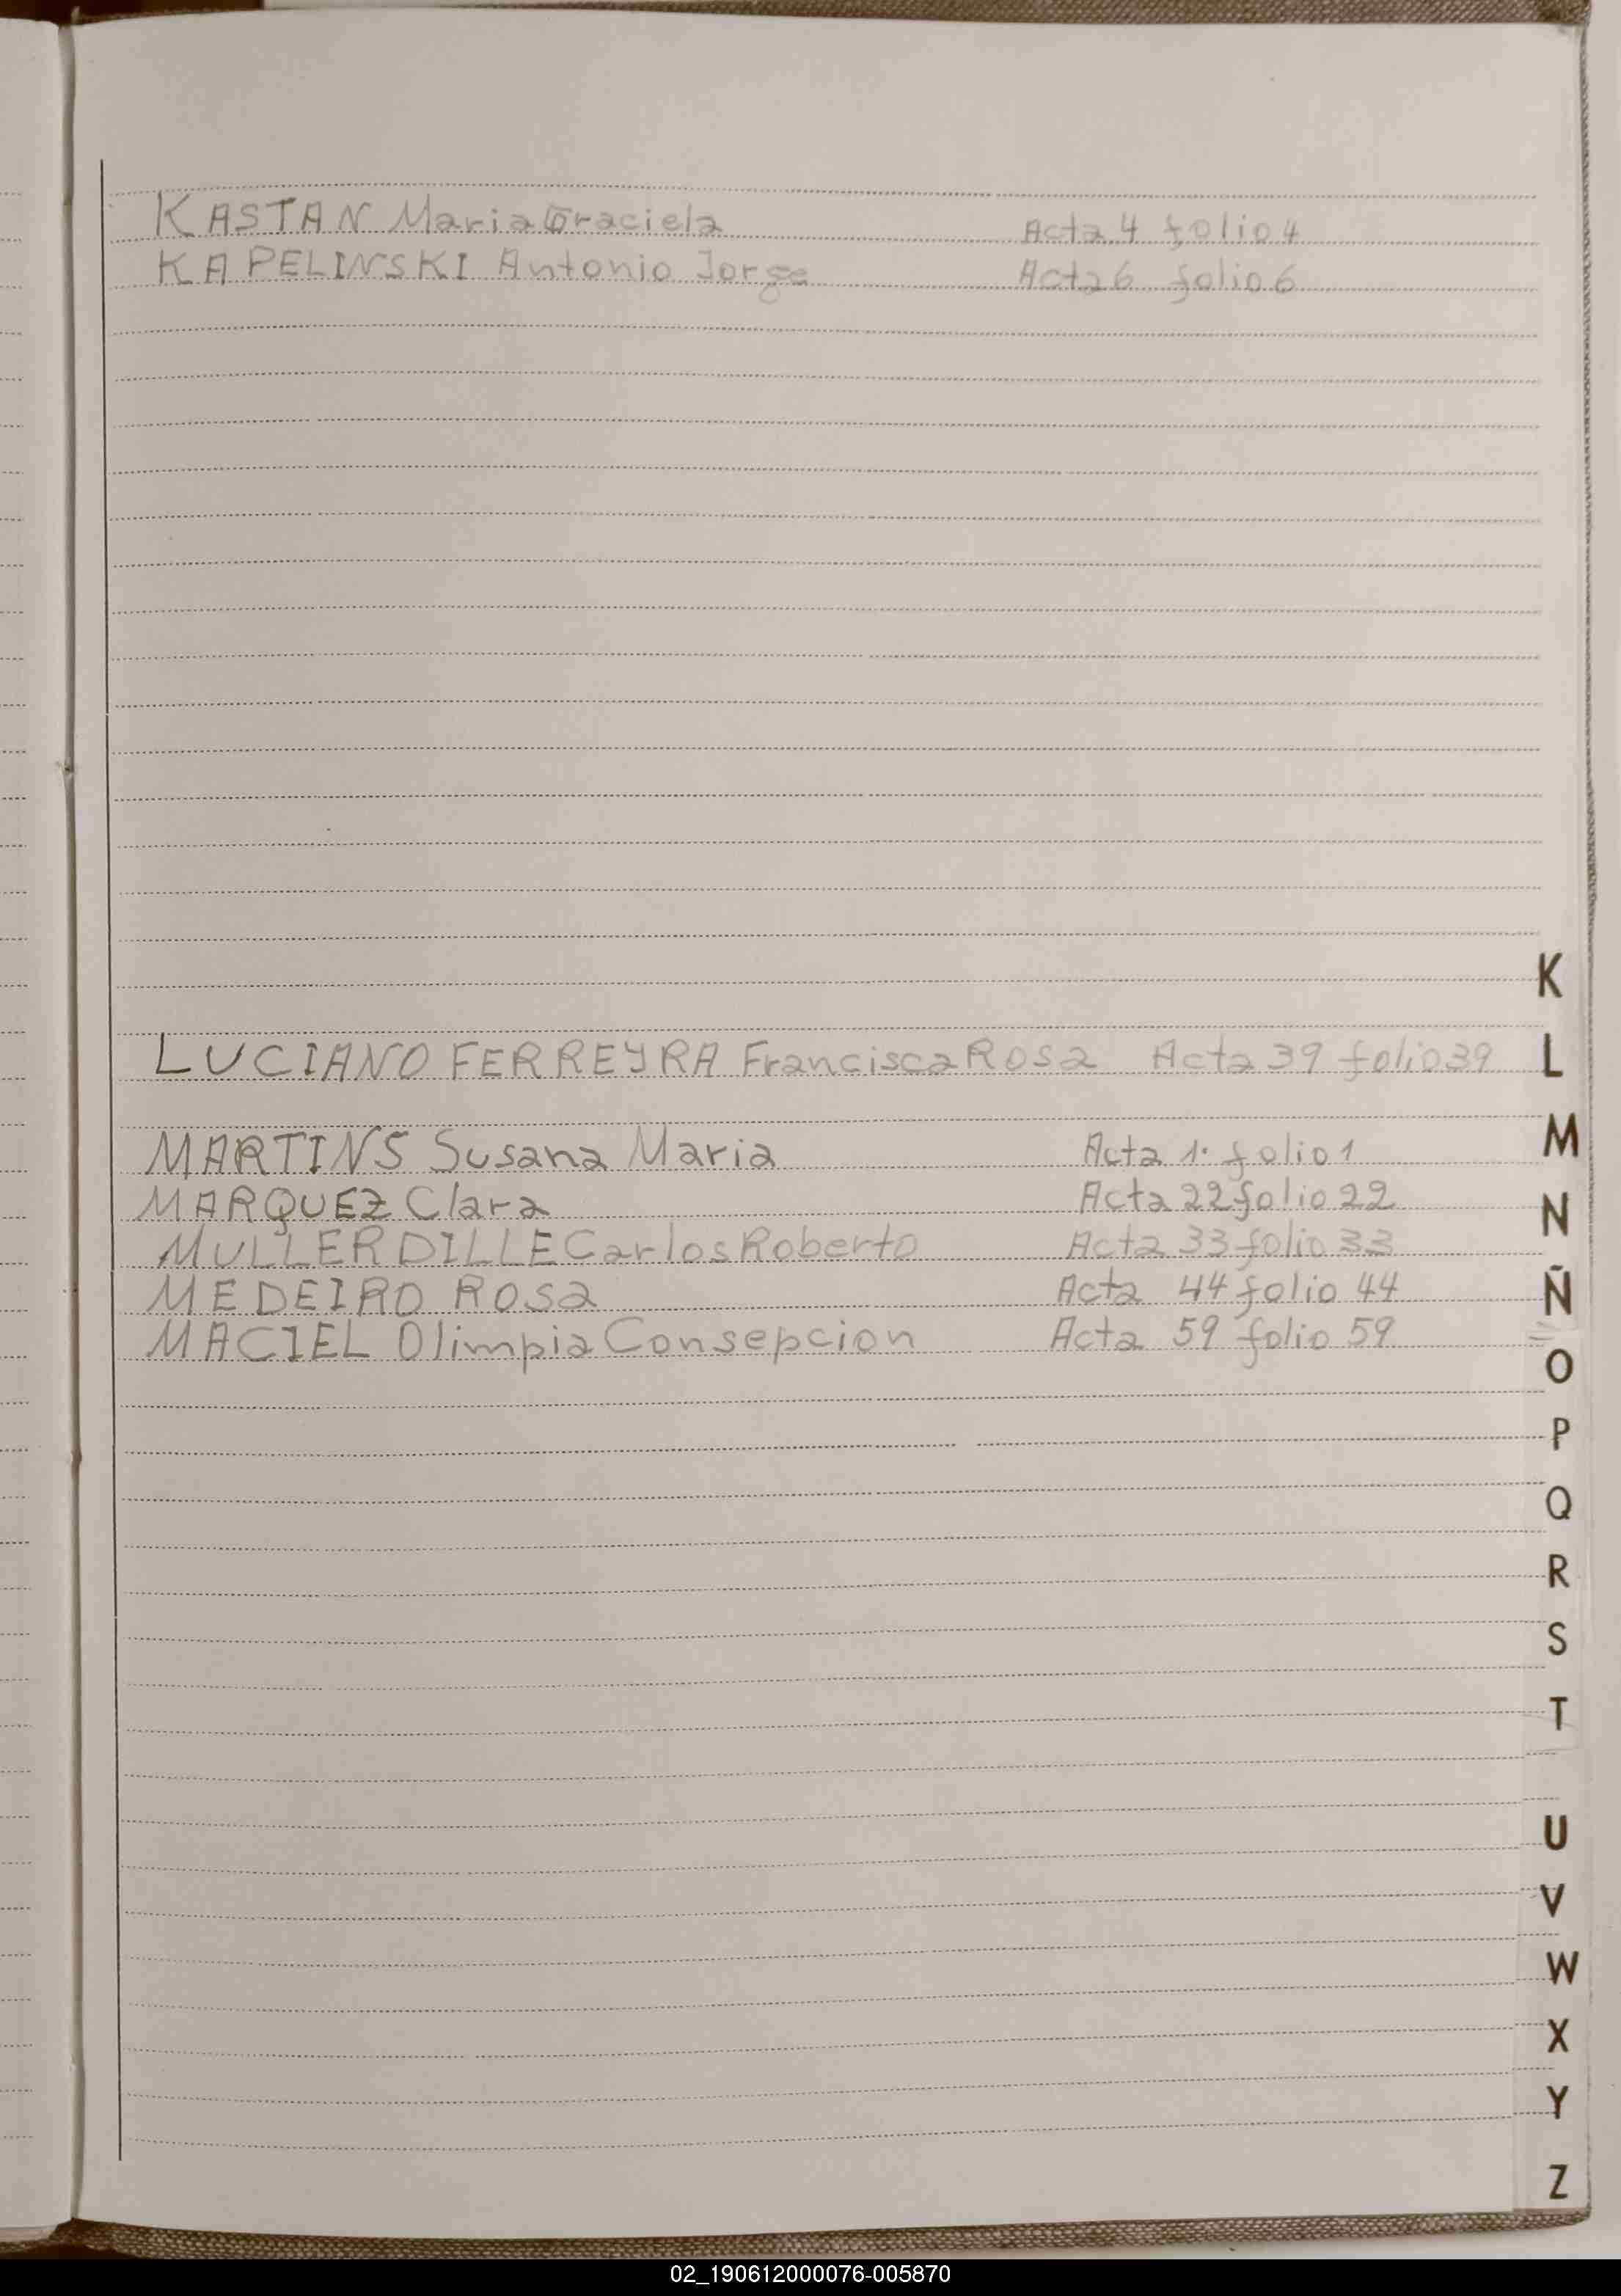 KASTAN Maria Graciela Acta 4 folio 4
KAPELINSKI Antonio Jorge Acta 6 folio 6
K
LUCIANO FERREYRA Francisca Rosa Acta 39 folio 39 L
MARTINS Susana Maria Acta 1. folio 1 M
MARQUEZ Clara Acta 22 folio 22 N
MULLER DILLE Carlos Roberto Acta 33 folio 33
MEDEIRO Rosa Acta 44 folio 44 Ñ
MACIEL Olimpia Consepcion Acta 59 folio 59
O
P
Q
R
S
T
U
V
W
X
Y
Z
02_190612000076-005870